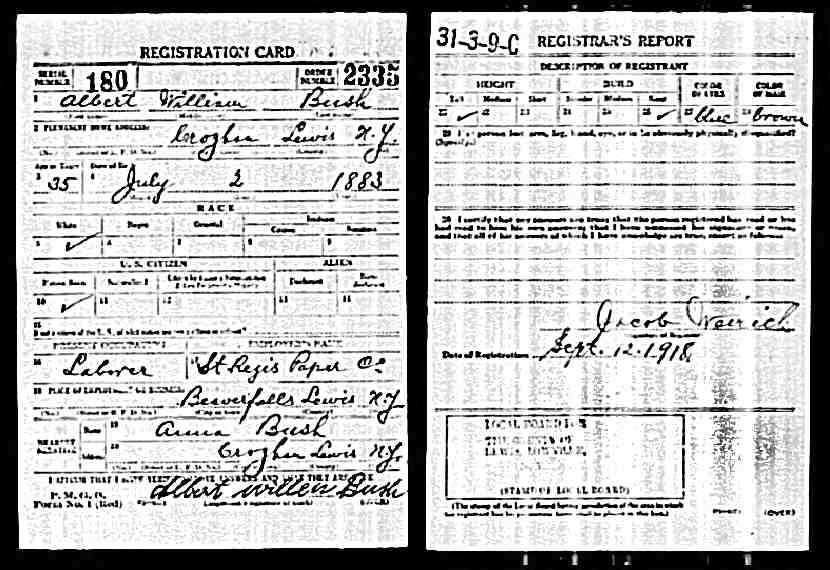 REGISTRATION CARD
SERIAL NUMBER 180 ORDER NUMBER 2335
1 Albert William Bush
2 PERMANENT HOME ADDRESS:
Croghan Lewis N.Y.
Age in Years Date of Birth
3 35 4 July 2 1883
RACE
White Negro Oriental Indian
Citizen
5 ✓ 6 7 8 9
U. S. CITIZEN ALIEN
Native Born Naturalized Declarant Non-declarant
10 ✓ 11 12 13 14
15
PRESENT OCCUPATION EMPLOYER'S NAME
16 Laborer 17 St Regis Paper Co
18 PLACE OF EMPLOYMENT OR BUSINESS
Beaverfalls Lewis N.Y.
NEAREST RELATIVE Name 19 Anna Bush
Address 20 Croghan Lewis N.Y.
I AFFIRM THAT I HAVE VERIFIED ANSWERS AND THAT THEY ARE TRUE
P. M. G. O.
Form No. 1 (Red) Albert Willen Bush
(OVER)
31-3-9-C REGISTRAR'S REPORT
DESCRIPTION OF REGISTRANT
HEIGHT BUILD COLOR OF EYES COLOR OF HAIR
Tall Medium Short Slender Medium Stout
21 ✓ 22 23 24 25 26 ✓ 27 blue 28 brown
29 Has person lost arm, leg, hand, eye, or is he obviously physically disqualified?
(Specify.)
30 I certify that my answers are true; that the person registered has read or has
had read to him his own answers; that I have witnessed his signature or mark,
and that all of his answers of which I have knowledge are true, except as follows:
Jacob Weirich
Date of Registration Sept. 12-1918
LOCAL BOARD FOR
THE COUNTY OF
LEWIS, LOWVILLE,
(STAMP OF LOCAL BOARD)
(The stamp of the Local Board having jurisdiction of the area in which
the registrant has his permanent home shall be placed in this box.)
(OVER)